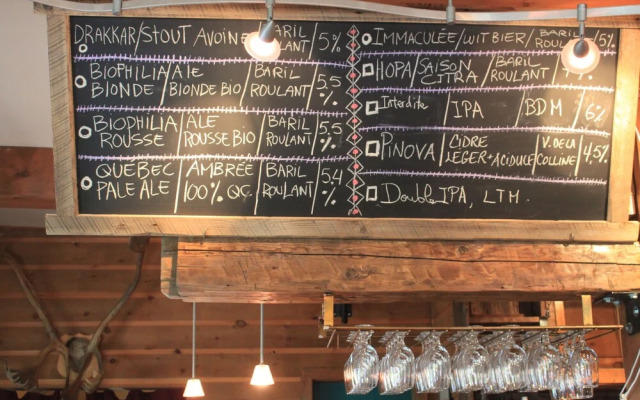 DRAKKAR/STOUT AVOINE BARIL ROULANT 5%
BIOPHILIA BLONDE / ALE BLONDE BIO / BARIL ROULANT / 5,5 %
BIOPHILIA ROUSSE / ALE ROUSSE BIO / BARIL ROULANT / 5,5 %
QUEBEC PALE ALE / AMBRÉE 100% QC. / BARIL ROULANT / 5,4 %
IMMACULÉE/WIT BIER/ BARIL 5%
HOPA/ SAISON CITRA / BARIL ROULANT /
Interdite / IPA / BDM / 6%
PINOVA / CIDRE LÉGER+ACIDULÉ / V. DE LA COLLINE / 4,5%
Double IPA, LTM.